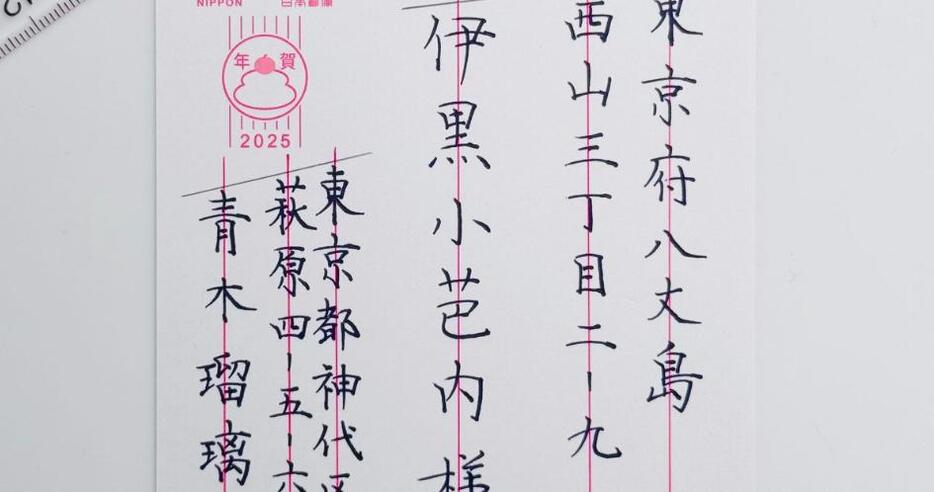 東京府八丈島
西山三丁目二-九
伊黒小芭内様
NIPPON 日本郵便
年賀
2025
東京都神代区
萩原四-五-六
青木瑠璃